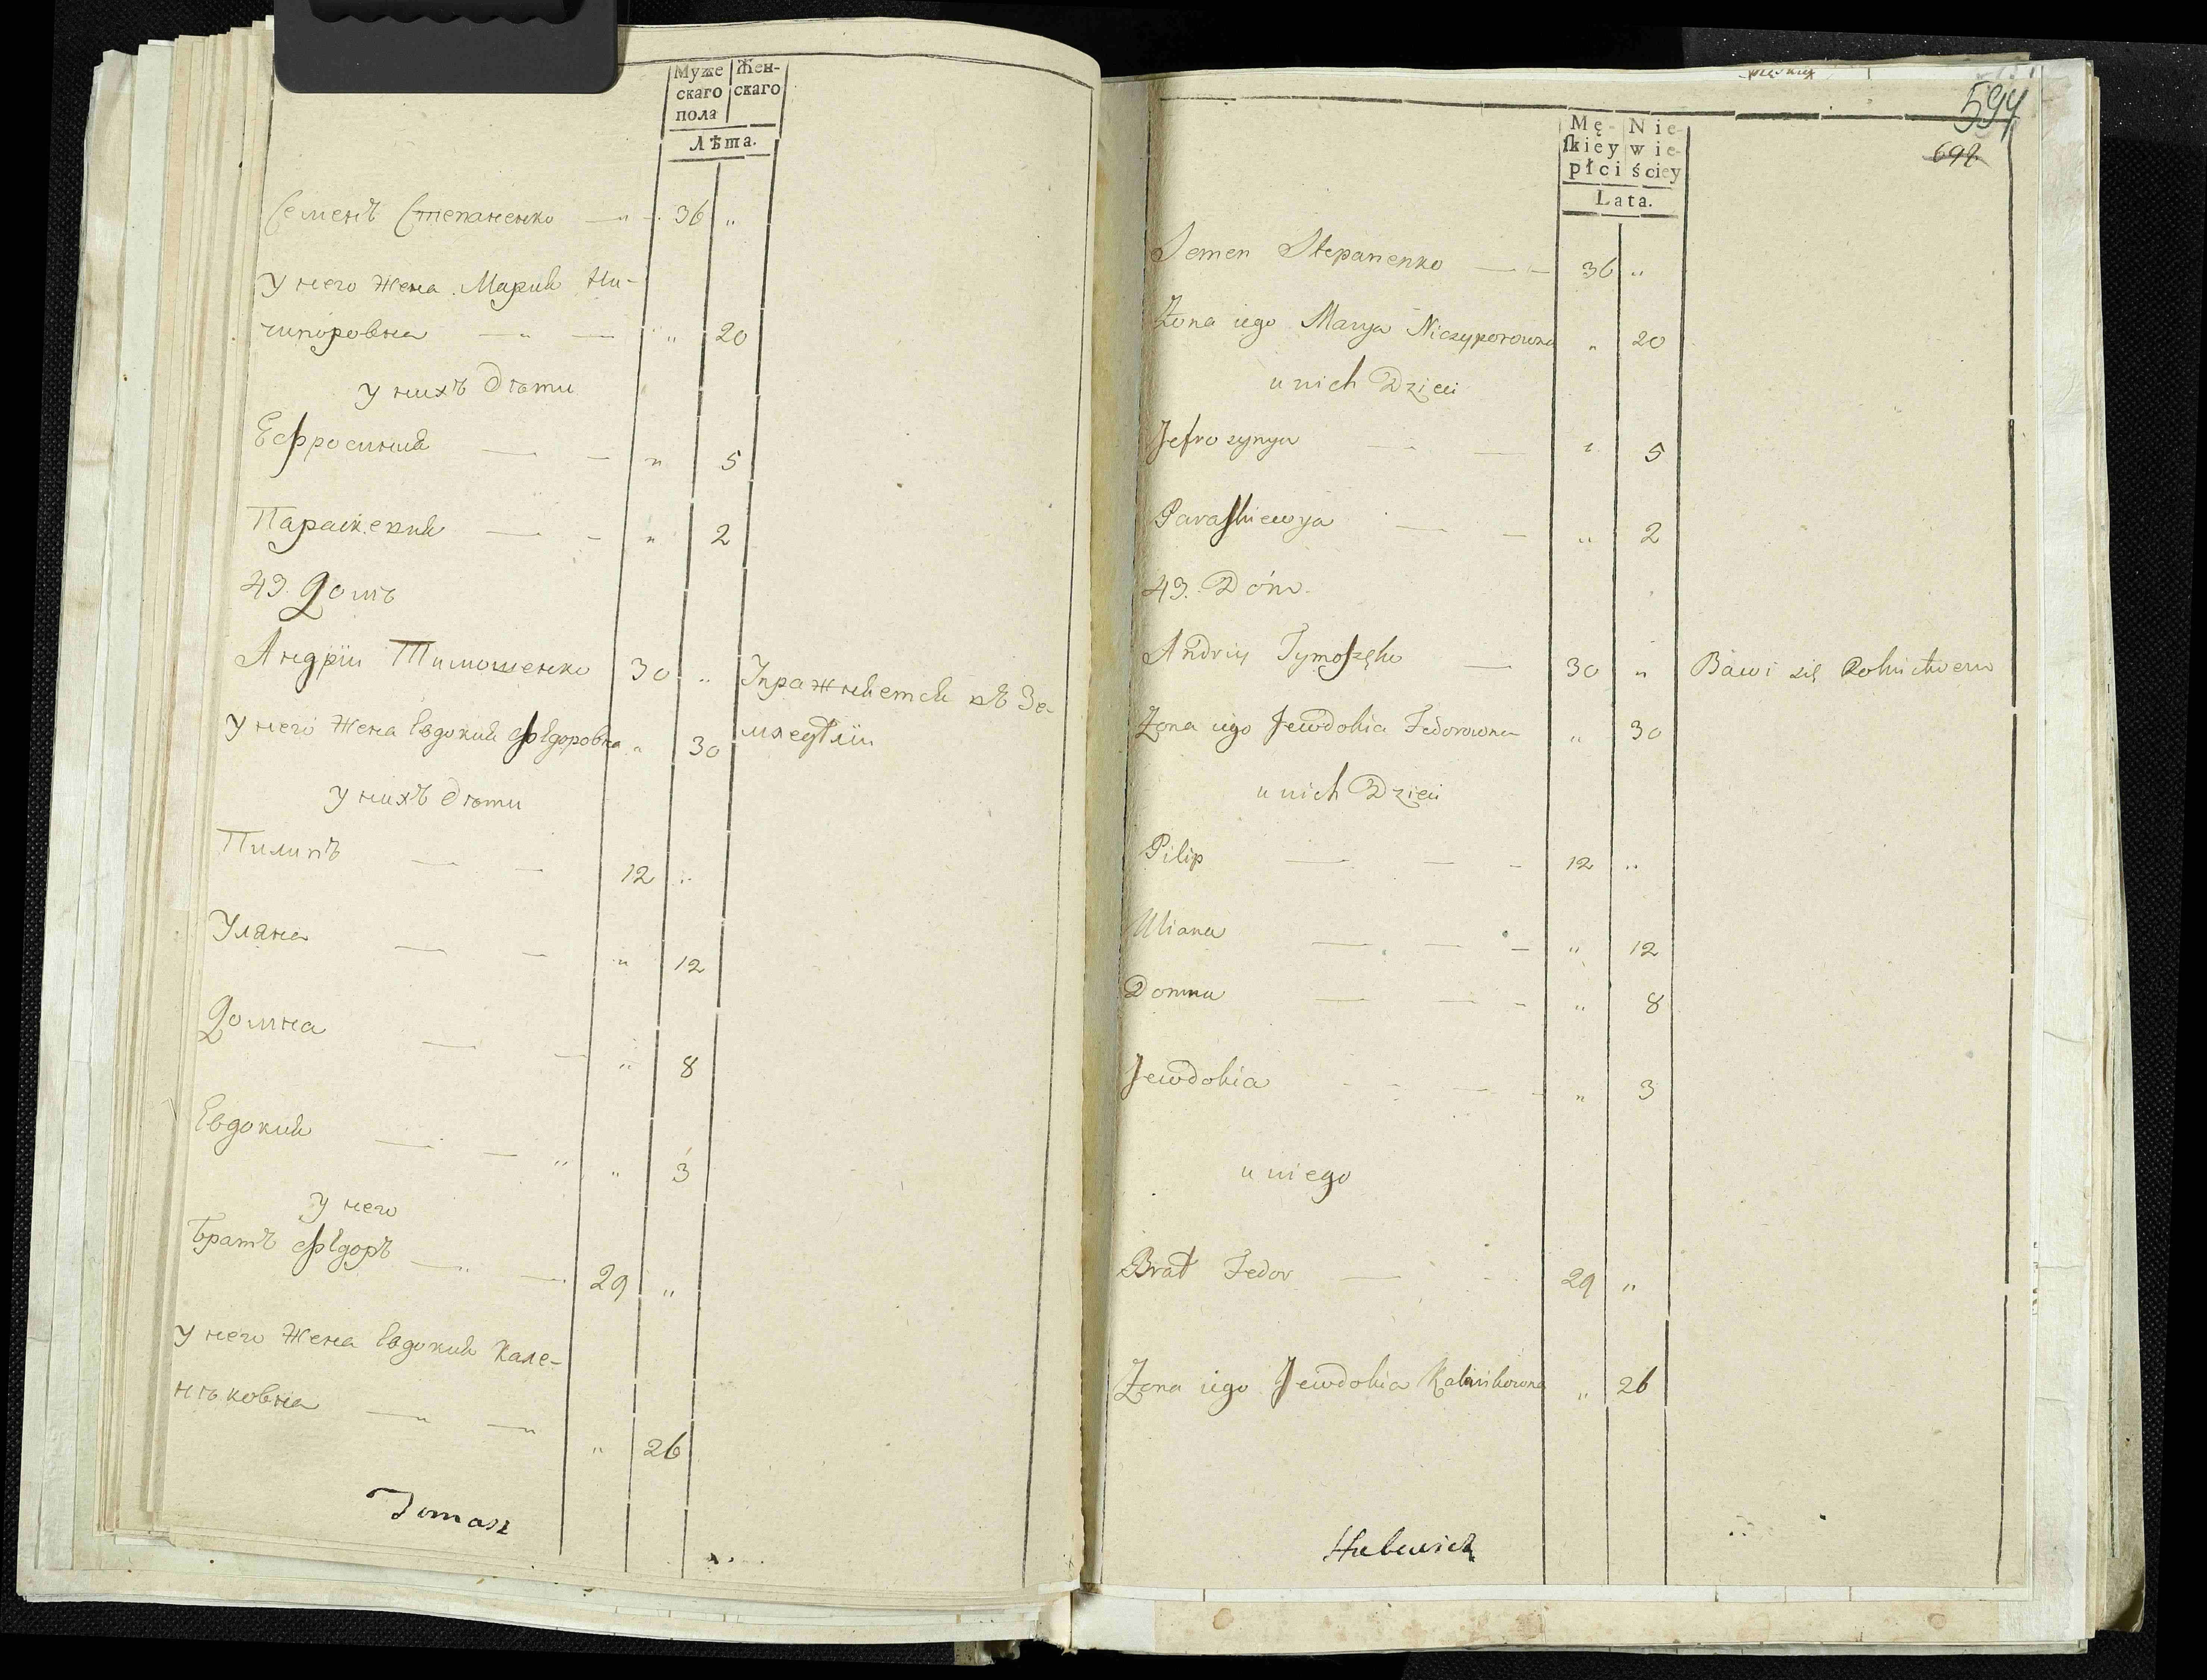 Муже Жен-
скаго скаго
пола
Лѣта.
Семенъ Степаненко — „ — 36 „
у него жена Мария Ни-
чипоровна — „ — „ 20
у нихъ дѣти
Ефросиния — — „ 5
Параскевия — — „ 2
43. Домъ
Андрїи Тимошенко 30 „ Упражняется въ Зе-
у него жена Евдокия Федоровна „ 30 мледѣлїи
у нихъ дѣти
Пилипъ — — 12 „
Уляна — — „ 12
Домна — — „ 8
Евдокия — — „ „ 3
у него
Братъ Федоръ — — 29 „
у него жена Евдокия Кале-
нѣковна — „ — „ „ 26
Tomasz
594
692.
Mę- Nie-
ſkiey wie-
płci ściey
Lata.
Semen Stepanenko — „ — 36 „
Żona iego Marya Niczyporowna „ 20
u nich Dzieci
Jefrozynya — — „ 5
Paraſkiewya — — „ 2
43. Dóm.
Andriy Tymoſzęko — 30 „ Bawi się Rolnictwem
Żona iego Jewdokia Fedorowna „ 30
u nich Dzieci
Pilip — — — 12 „
Uliana — — — „ 12
Domna — — — „ 8
Jewdokia — — — „ 3
u niego
Brat Fedor — 29 „
Żona iego Jewdokia Kalinikowna „ 26